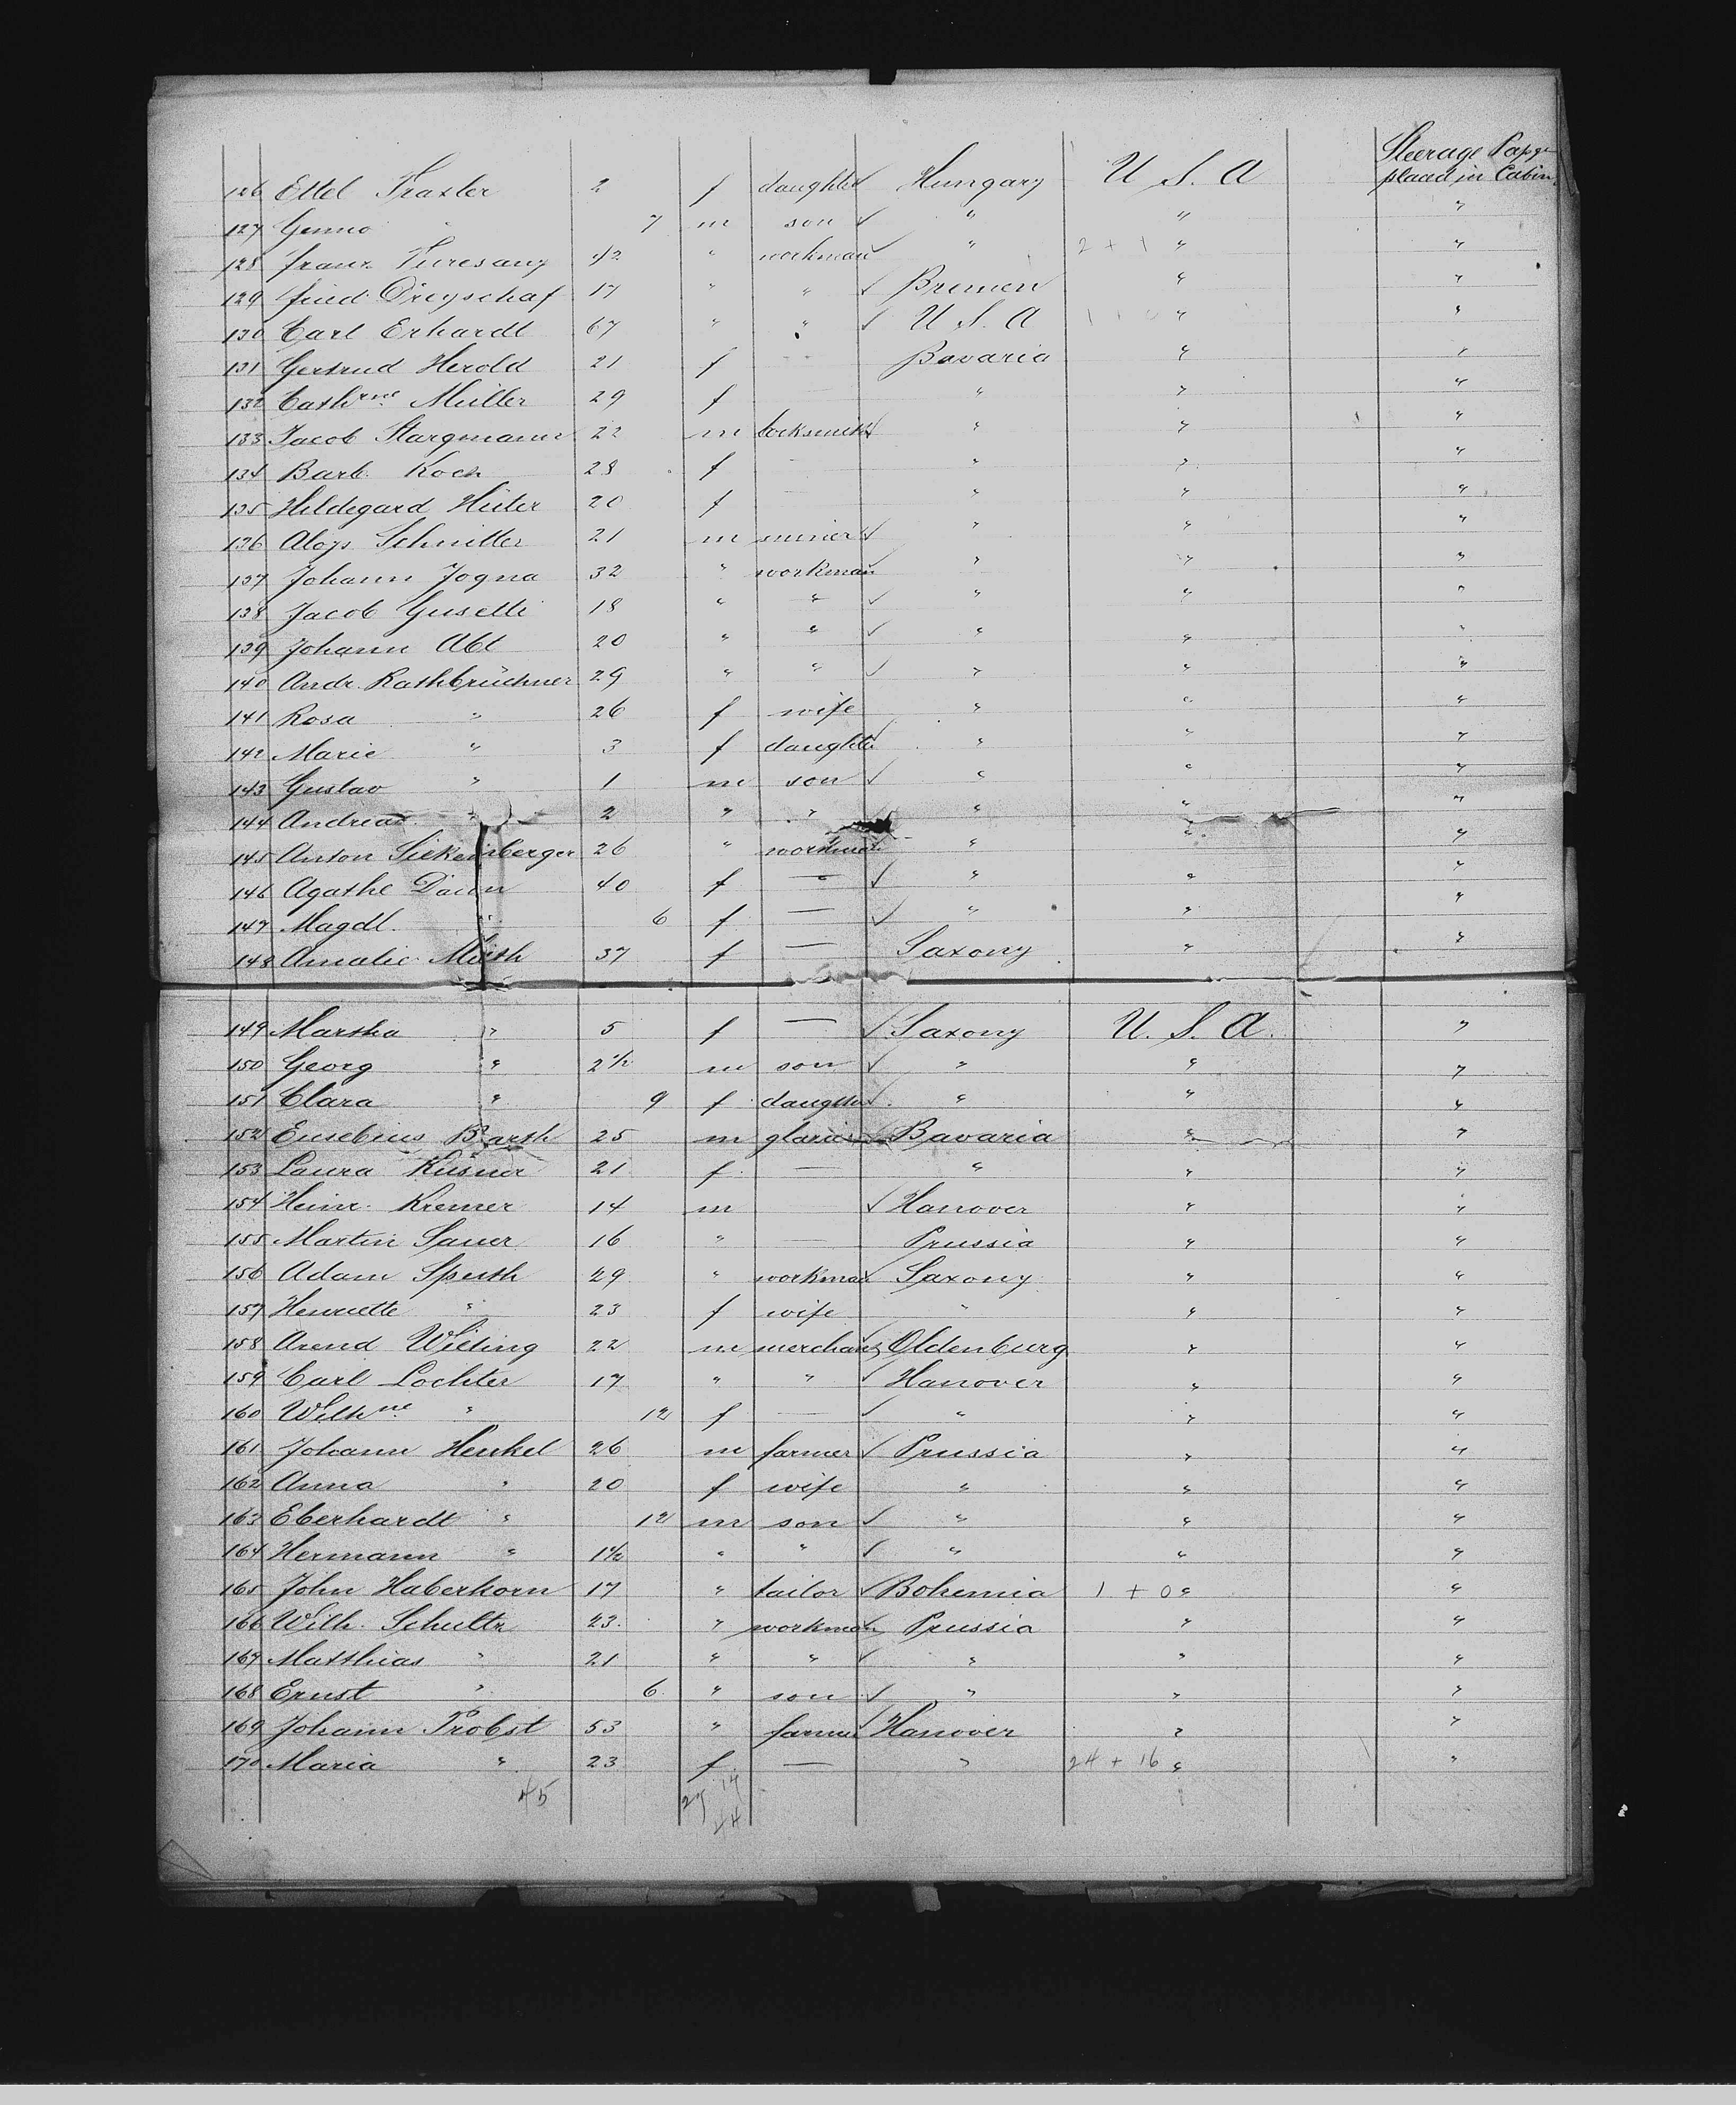 Steerage Passgr
126 Ettel Traxler 2 f daughter Hungary U. S. A placed in Cabin
127 Genno " 7 m son " " "
128 Franz 42 " workman " 2 + 1 " "
129 fried. Dreyschaf 17 " " Bremen " "
130 Carl Erhardt 67 " " U. S. A " "
131 Gertrud Herold 21 f — Bavaria " "
132 Cathrne Müller 29 f — " " "
133 Jacob Stargmann 22 m locksmith " " "
134 Barb. Koch 28 f — " " "
135 Hildegard Hüter 20 f — " " "
136 Aloys Schnitter 21 m miner " " "
137 Johann Jogna 32 " workman " " "
138 Jacob Gusetti 18 " " " " "
139 Johann Abt 20 " " " " "
140 Andr. Rathbrüchner 29 " " " " "
141 Rosa " 26 f wife " " "
142 Marie " 3 f daughter " " "
143 Gustav " 1 m son " " "
144 Andreas " 2 " " " " "
145 Anton Siekenberger 26 " workman " " "
146 Agathe Daum 40 f — " " "
147 Magdl. " 6 f — " " "
148 Amalie Muth 37 f — Saxony " "
149 Martha " 5 f — Saxony U. S. A. "
150 Georg " 2½ m son " " "
151 Clara " 9 f daughter " " "
152 Eusebius Barth 25 m glazier Bavaria " "
153 Laura Küsner 21 f — " " "
154 Heinr. Kremer 14 m — Hanover " "
155 Martin Sauer 16 " — Prussia " "
156 Adam Sputh 29 " workman Saxony " "
157 Henriette " 23 f wife " " "
158 Arend Wieting 22 m merchant Oldenburg " "
159 Carl Lochter 17 " " Hanover " "
160 Wilhne " 12 f — " " "
161 Johann Henkel 26 m farmer Prussia " "
162 Anna " 20 f wife " " "
163 Eberhardt " 12 m son " " "
164 Hermann " 1½ " " " " "
165 John Haberkorn 17 " tailor Bohemia 1 + 0 " "
166 Wilh. Schultz 23. " workman Prussia " "
167 Matthias " 21 " " " " "
168 Ernst " 6. " son " " "
169 Johann Probst 53 " farmer Hanover " "
170 Maria " 23 f — " 24 + 16 " "
45 27 17
44